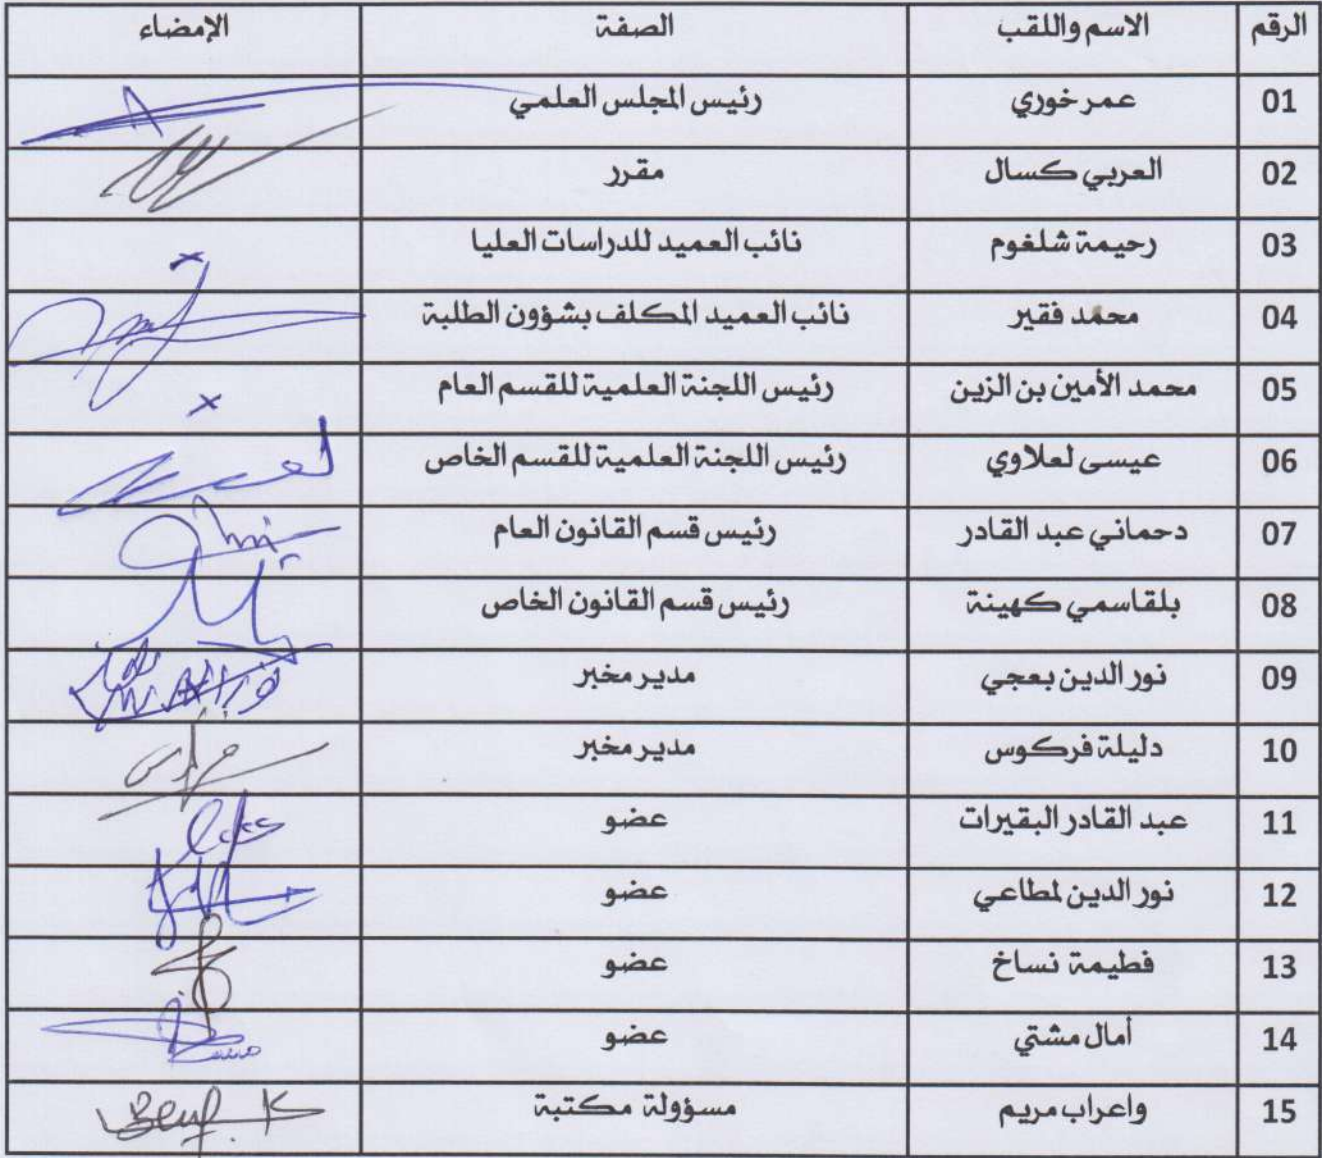 الرقم الاسم واللقب الصفة الإمضاء
01 عمر خوري رئيس المجلس العلمي
02 العربي كسال مقرر
03 رحيمة شلغوم نائب العميد للدراسات العليا
04 محمد فقير نائب العميد المكلف بشؤون الطلبة
05 محمد الأمين بن الزين رئيس اللجنة العلمية للقسم العام
06 عيسى لعلاوي رئيس اللجنة العلمية للقسم الخاص
07 دحماني عبد القادر رئيس قسم القانون العام
08 بلقاسمي كهينة رئيس قسم القانون الخاص
09 نور الدين بعجي مدير مخبر
10 دليلة فركوس مدير مخبر
11 عبد القادر البقيرات عضو
12 نور الدين لمطاعي عضو
13 فطيمة نساخ عضو
14 أمال مشتي عضو
15 واعراب مريم مسؤولة مكتبة